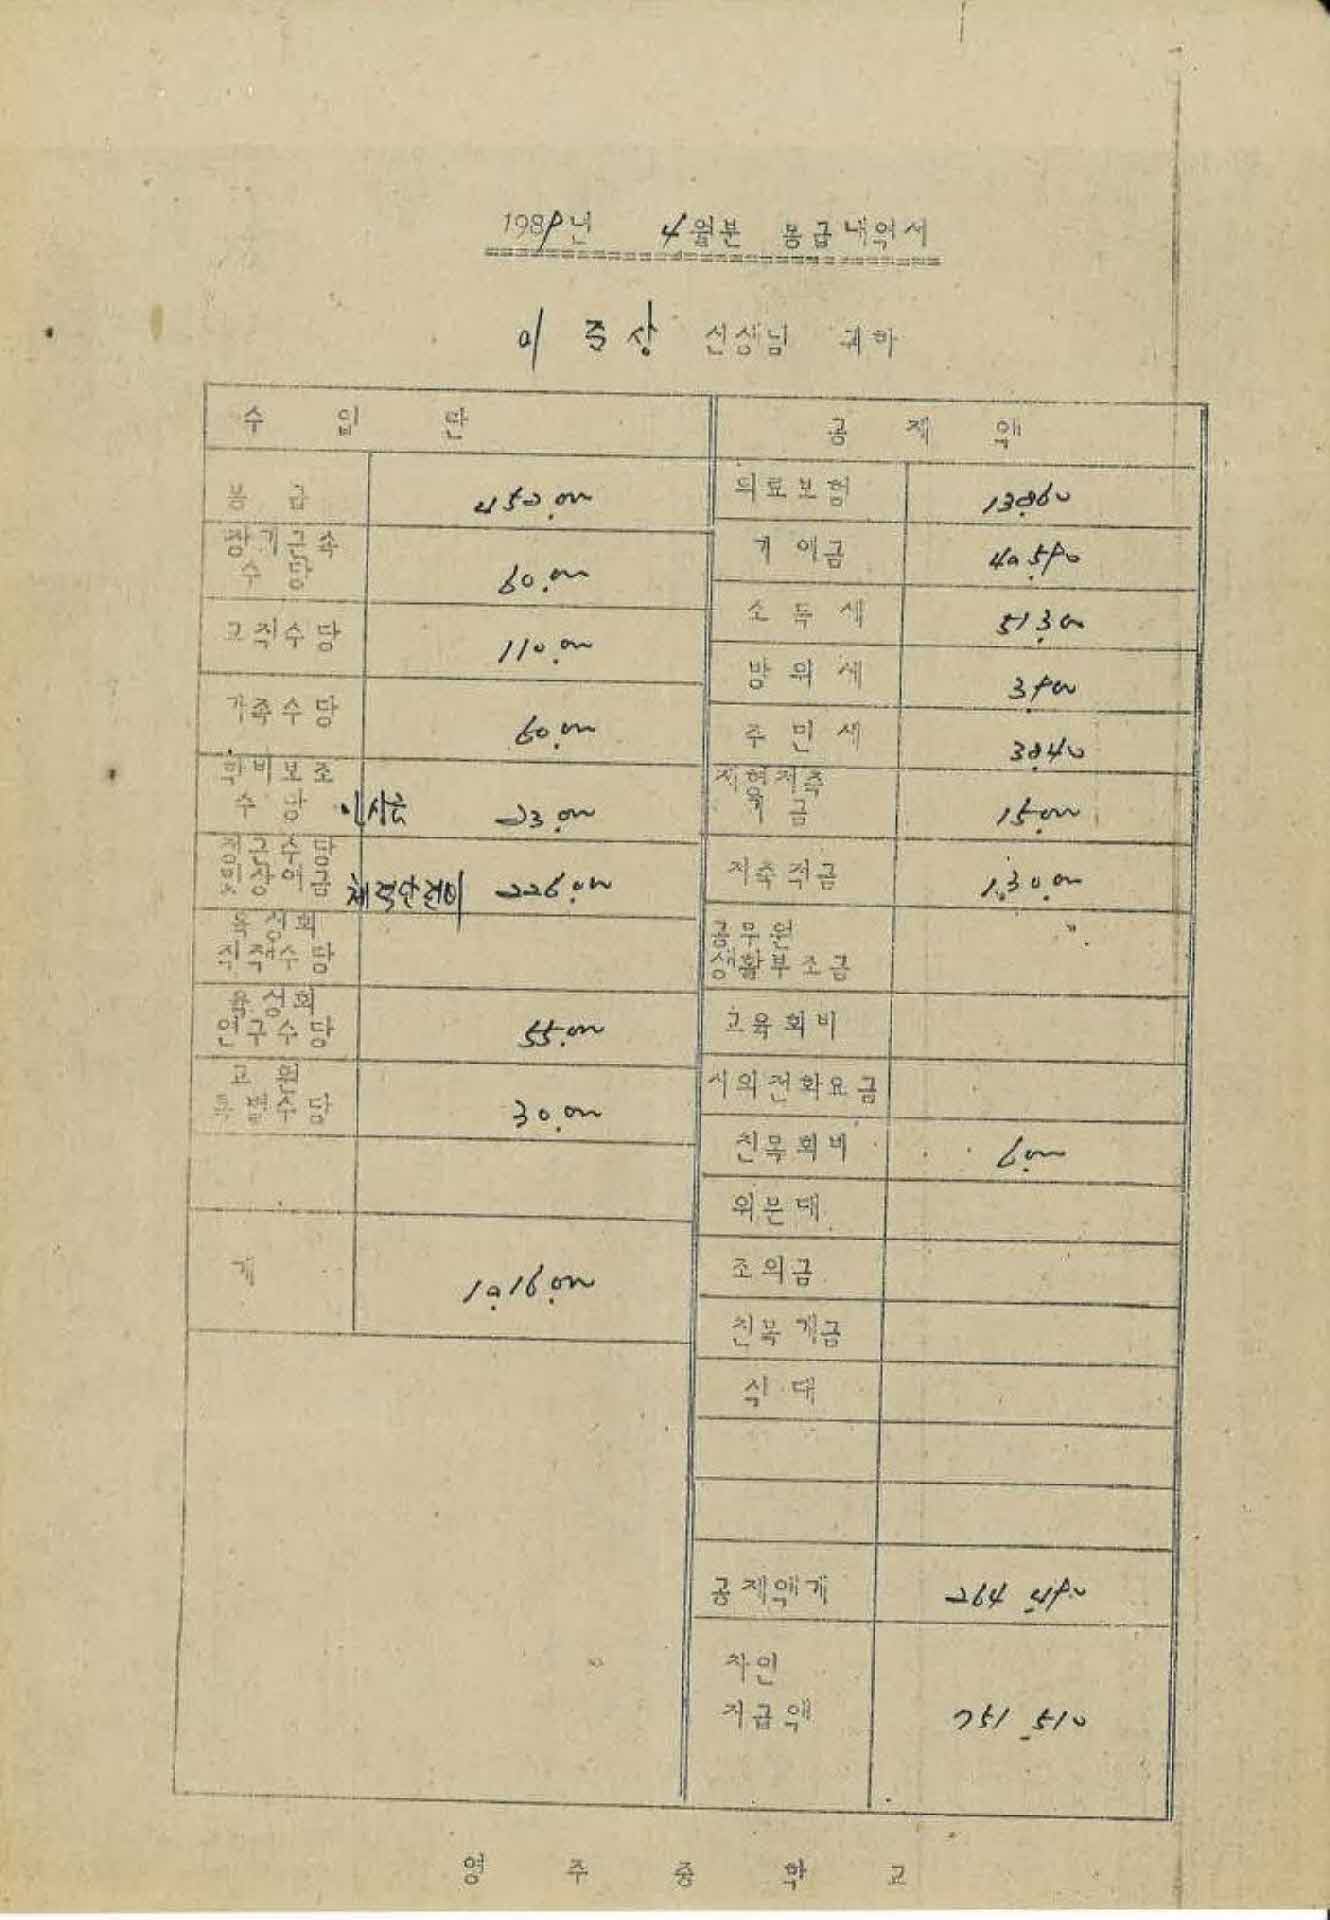 1989년 4월분 봉급내역서
이 주 상 선생님 귀하
수 입 란
봉 급 452.000
장기근속
수 당 60.000
교직수당 110.000
가족수당 60.000
학비보조
수 당 23.000
정근수당
및상여금 체력단련비 226.000
육성회
직책수당
육성회
연구수당 55.000
교 원
특별수당 30.000
계 1,016.000
공 제 액
의료보험 13,860
기여금 40,590
소 득 세 51,300
방 위 세 3,900
주 민 세 3,840
저축
기 금 15,000
저축적금 1,30,000
공무원
생활부조금
교육회비
시외전화요금
친목회비 6,000
위문대
조의금
친목계금
식 대
공제액계 264,490
차인
지급액 751,510
영 주 중 학 교